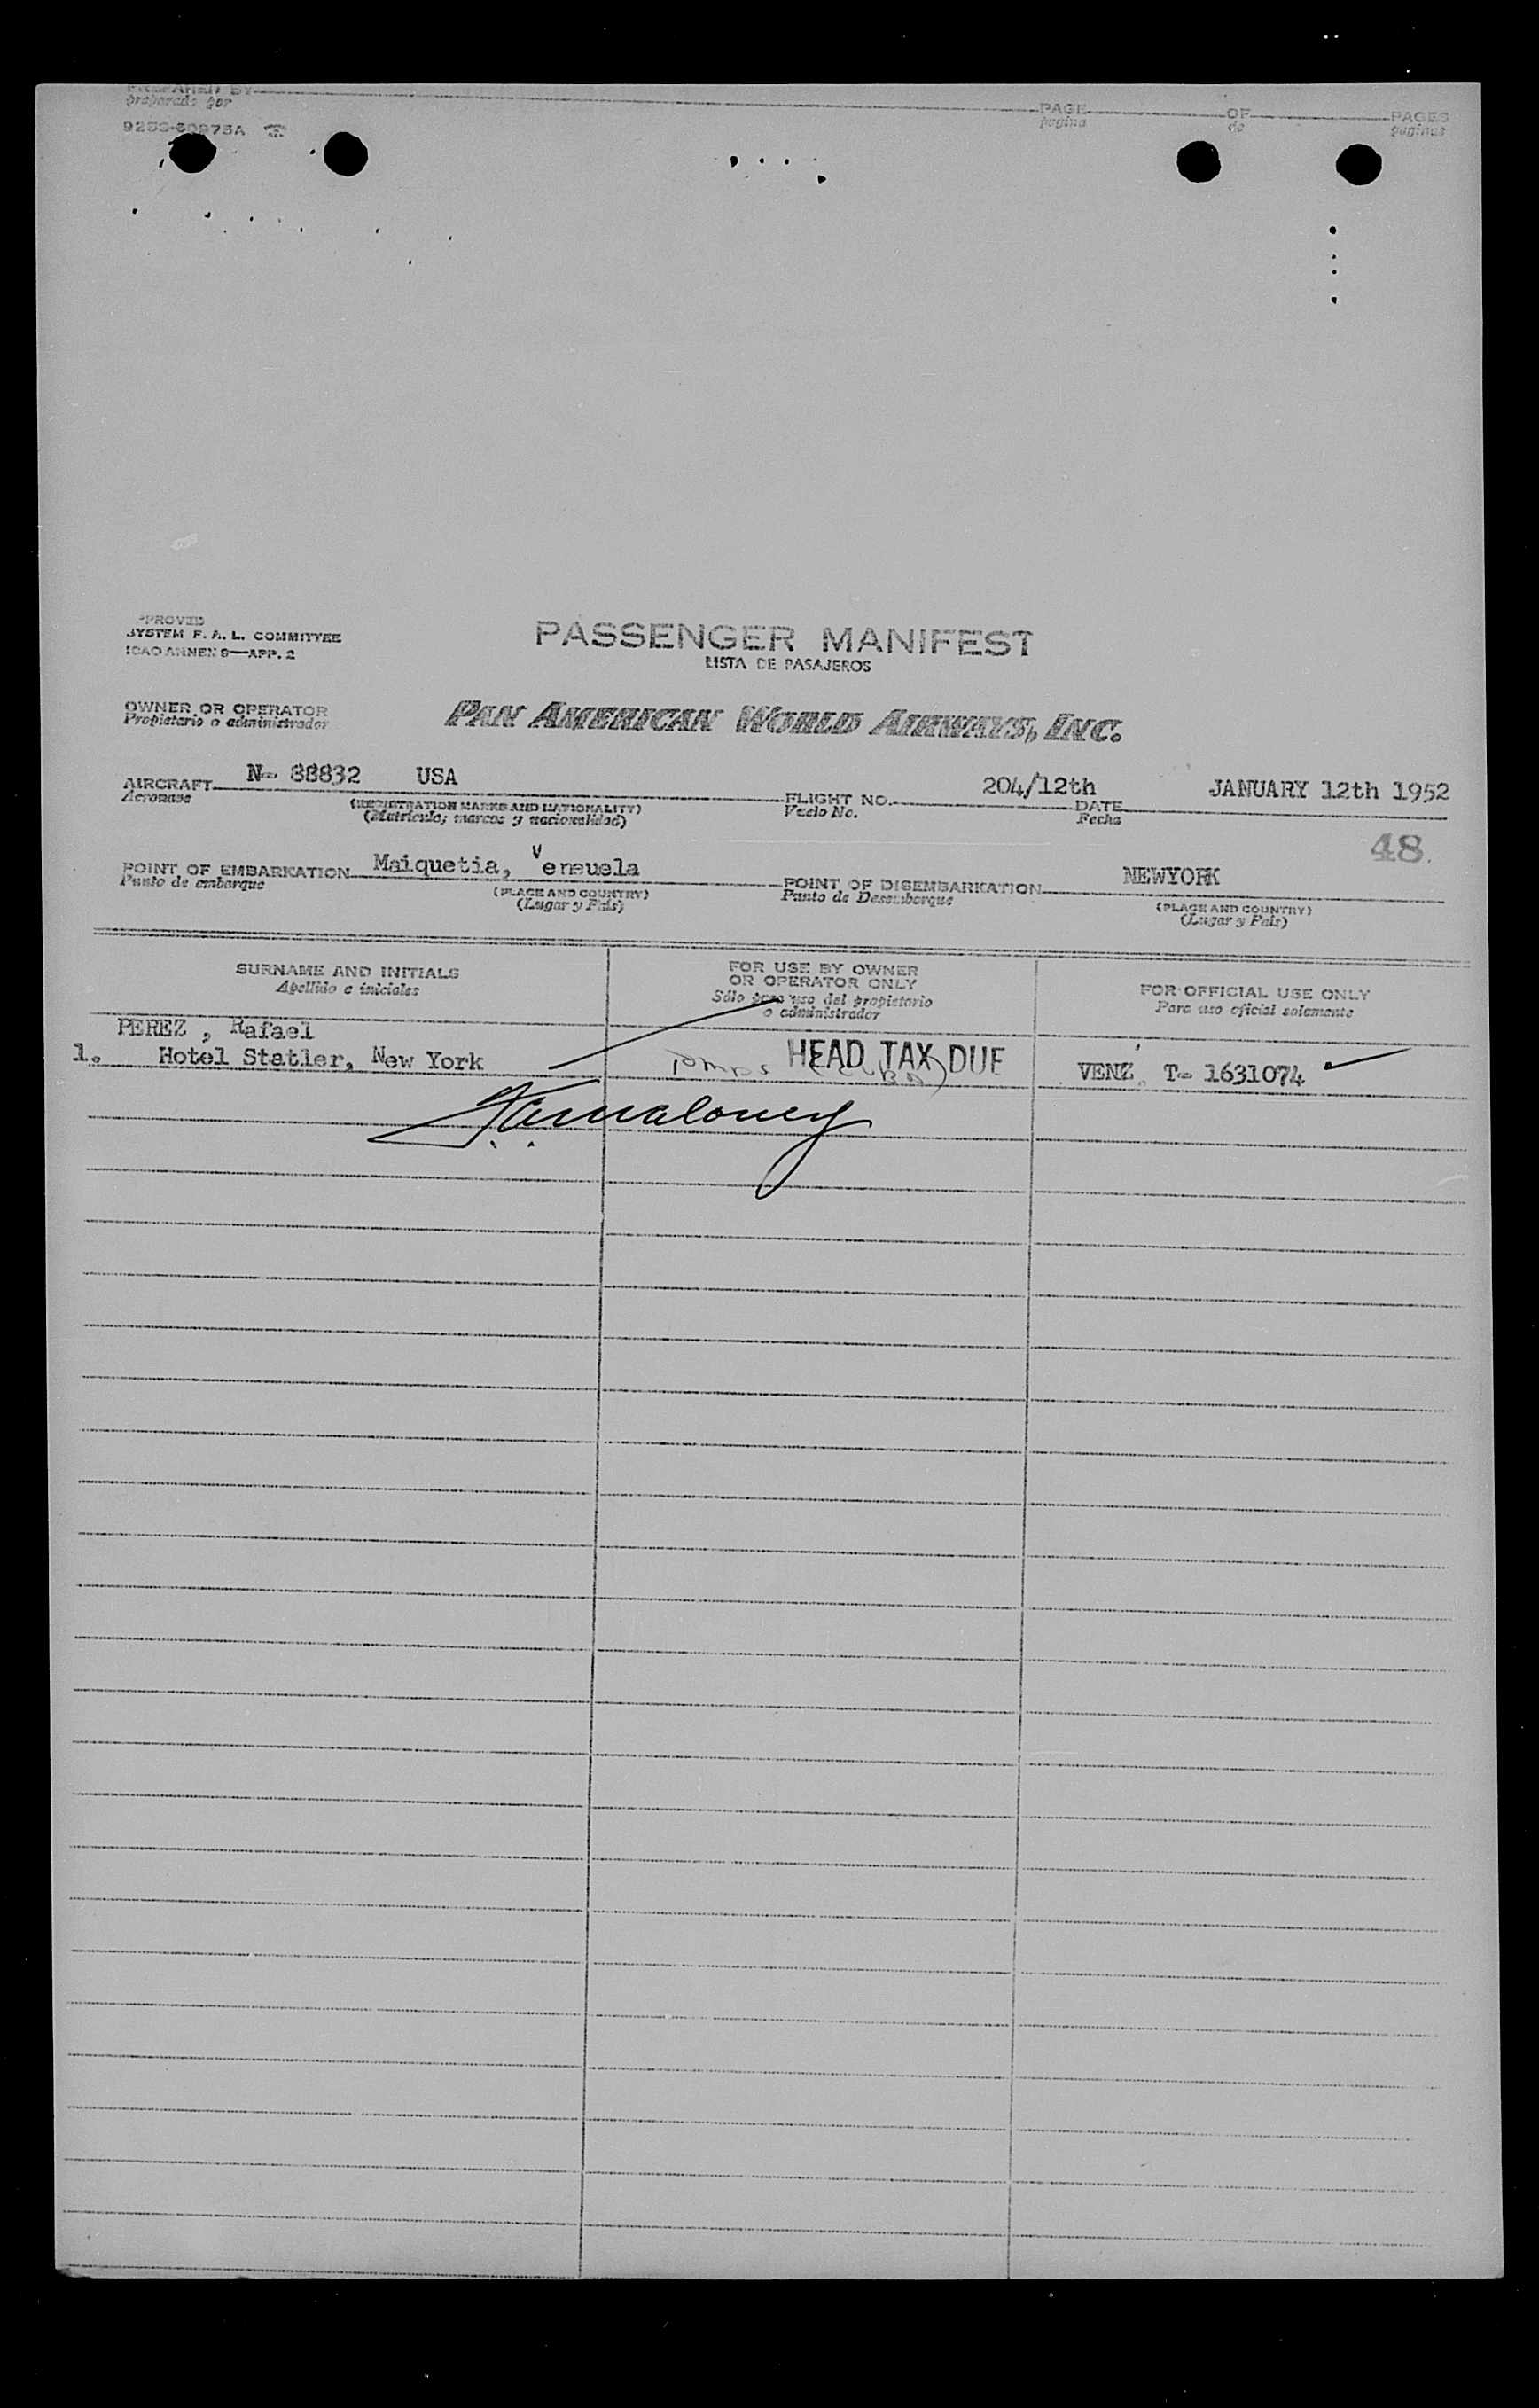 PREPARED BY PAGE OF PAGES
preparado por pagina de paginas
APPROVED
SYSTEM F. A. L. COMMITTEE
ICAO ANNEX 9—APP. 2
PASSENGER MANIFEST
LISTA DE PASAJEROS
OWNER OR OPERATOR
Propietario o administrador
PAN AMERICAN WORLD AIRWAYS, INC.
AIRCRAFT N- 88832 USA FLIGHT NO. 204/12th DATE JANUARY 12th 1952
Aeronave (REGISTRATION MARKS AND NATIONALITY) Vuelo No. Fecha
(Matricula; marcas y nacionalidad)
48.
POINT OF EMBARKATION Maiquetia, Venzuela POINT OF DISEMBARKATION NEWYORK
Punto de embarque (PLACE AND COUNTRY) Punto de Desembarque (PLACE AND COUNTRY)
(Lugar y País) (Lugar y País)
SURNAME AND INITIALS
Apellido e iniciales
FOR USE BY OWNER
OR OPERATOR ONLY
Sólo para uso del propietario
o administrador
FOR OFFICIAL USE ONLY
Para uso oficial solamente
PEREZ , Rafael
1. Hotel Statler, New York HEAD TAX DUE VENZ. T- 1631074